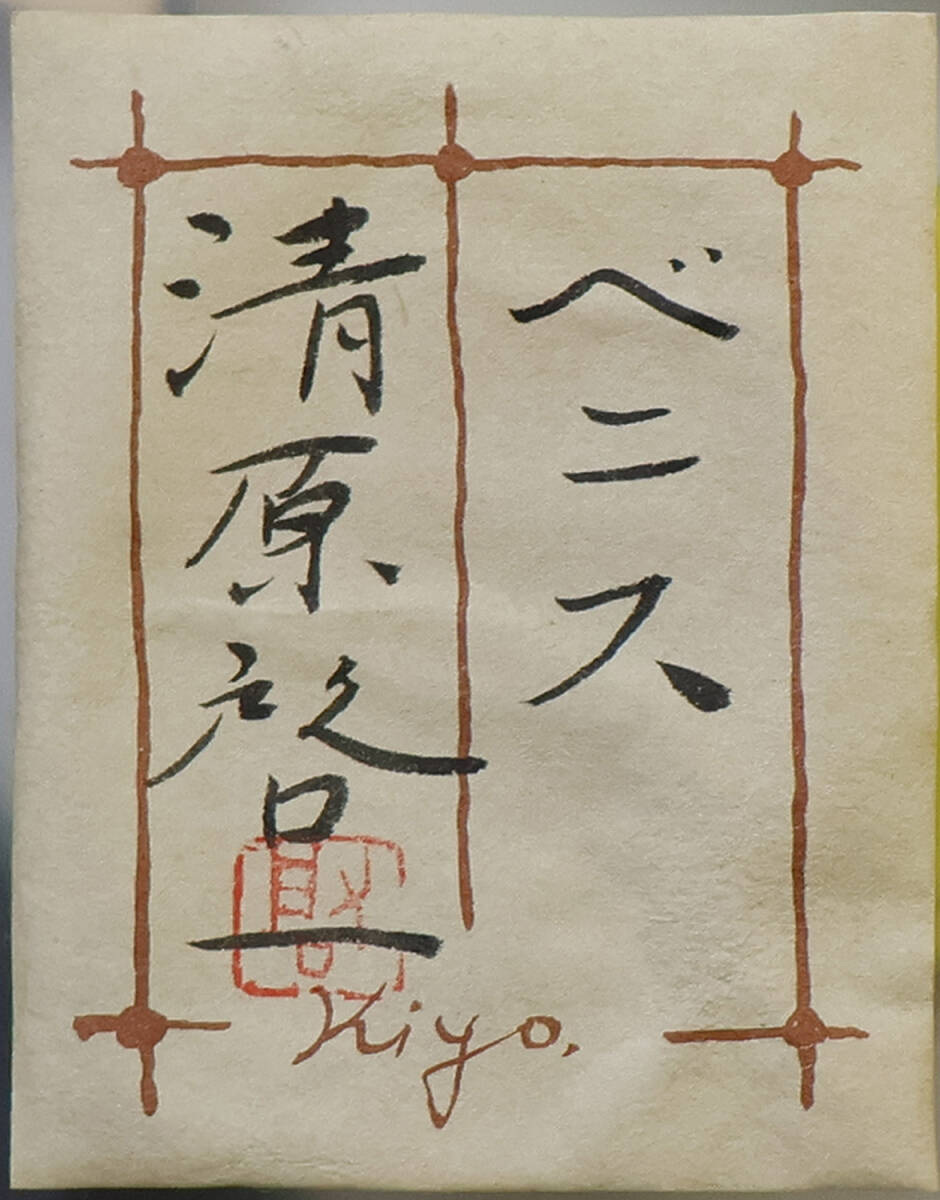 ベニス
清原啓一
Kiyo.